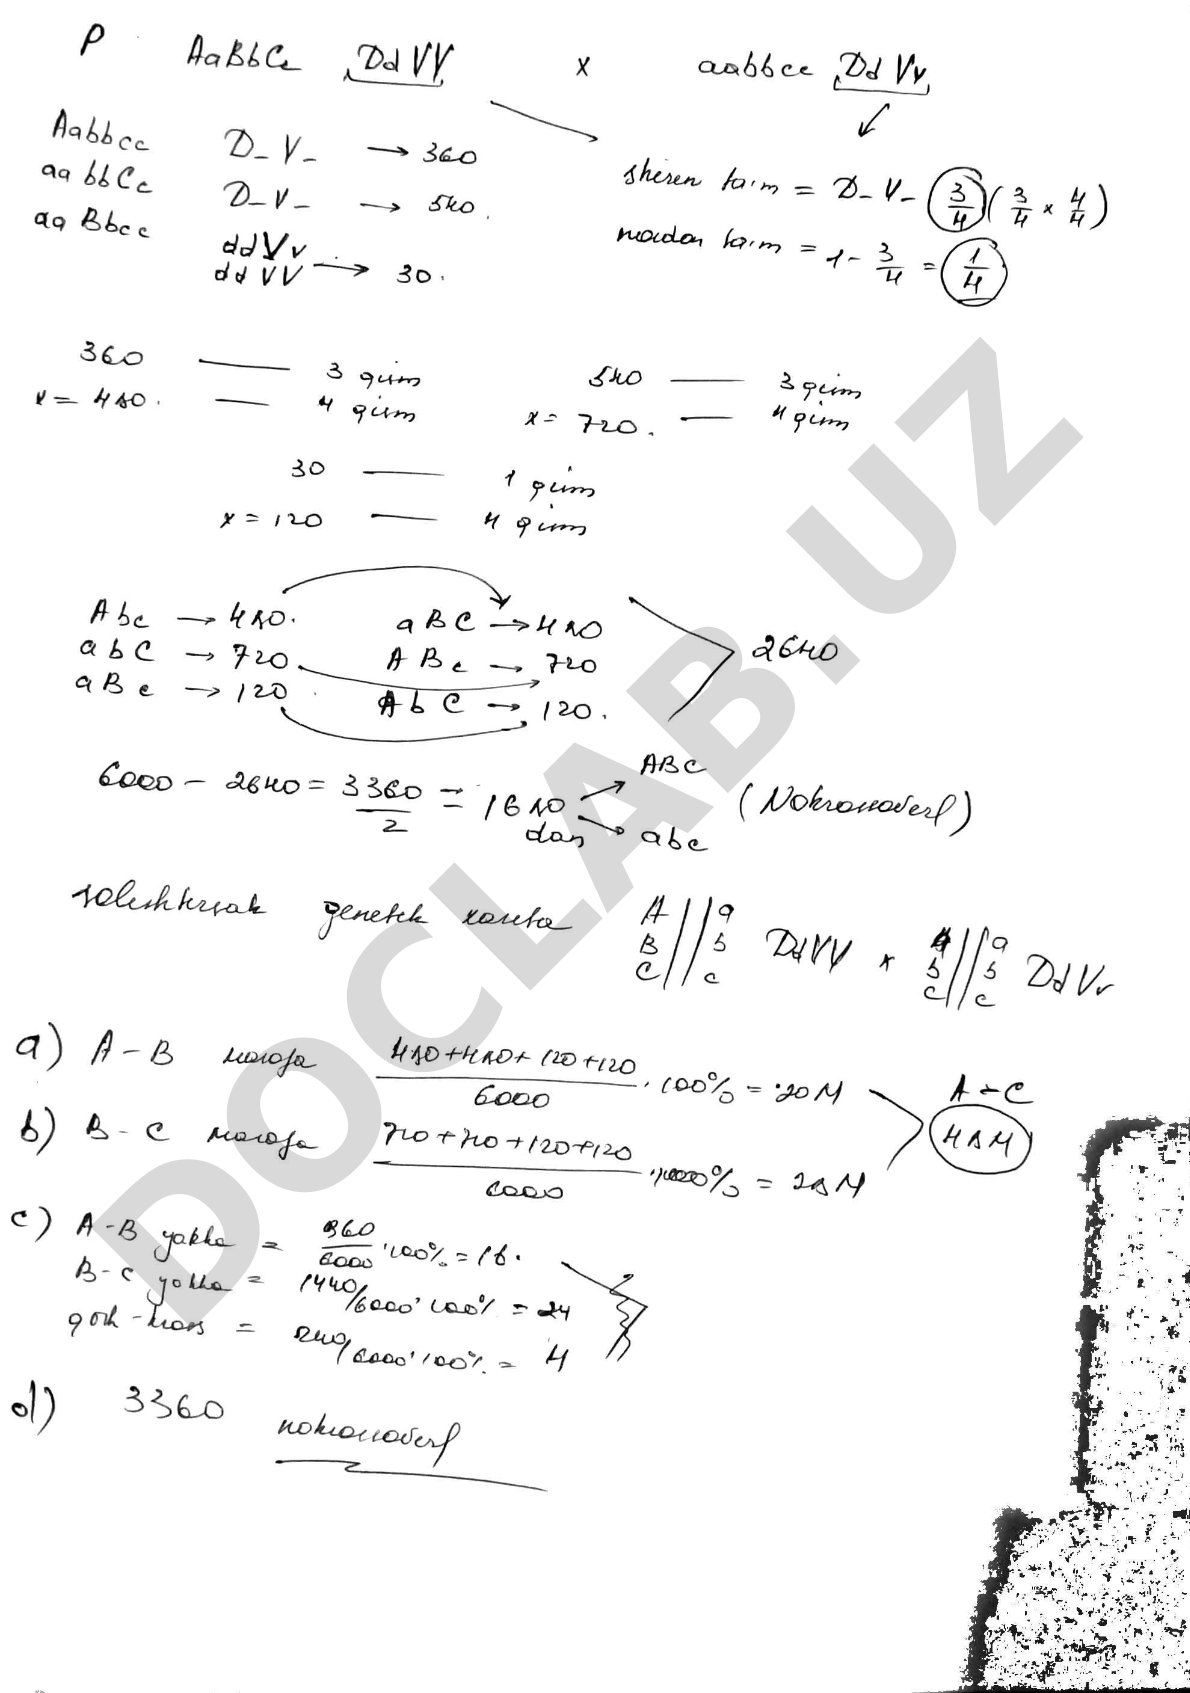 P AaBbCc DdVV x aabbcc DdVv
Aabbcc D_V_ → 360
aabbCc D_V_ → 540.
aaBbcc ddVv
ddVV → 30.
= D_V_ 3/4 (3/4 x 4/4)
= 1 - 3/4 = 1/4
360 — 3 qism
x = 480. — 4 qism
540 — 3 qism
x = 720. — 4 qism
30 — 1 qism
x = 120 — 4 qism
Abc → 480. aBC → 480
abC → 720 ABc → 720
aBc → 120 AbC → 120.
2640
6000 - 2640 = 3360/2 = 1680 dan
ABC
abc
(Nokrossoverl)
genetik xarita
A B C || a b c DdVV x b c || a b c DdVv
a) A-B masofa 480+480+120+120/6000 · 100% = 20 M
b) B-C masofa 720+720+120+120/6000 · 100% = 28 M
A-C
48M
c) A-B yakka = 960/6000 · 100% = 16.
B-C yakka = 1440/6000 · 100% = 24
qosh-kross = 240/6000 · 100% = 4
d) 3360 nokrossoverl
DOCLAB.UZ